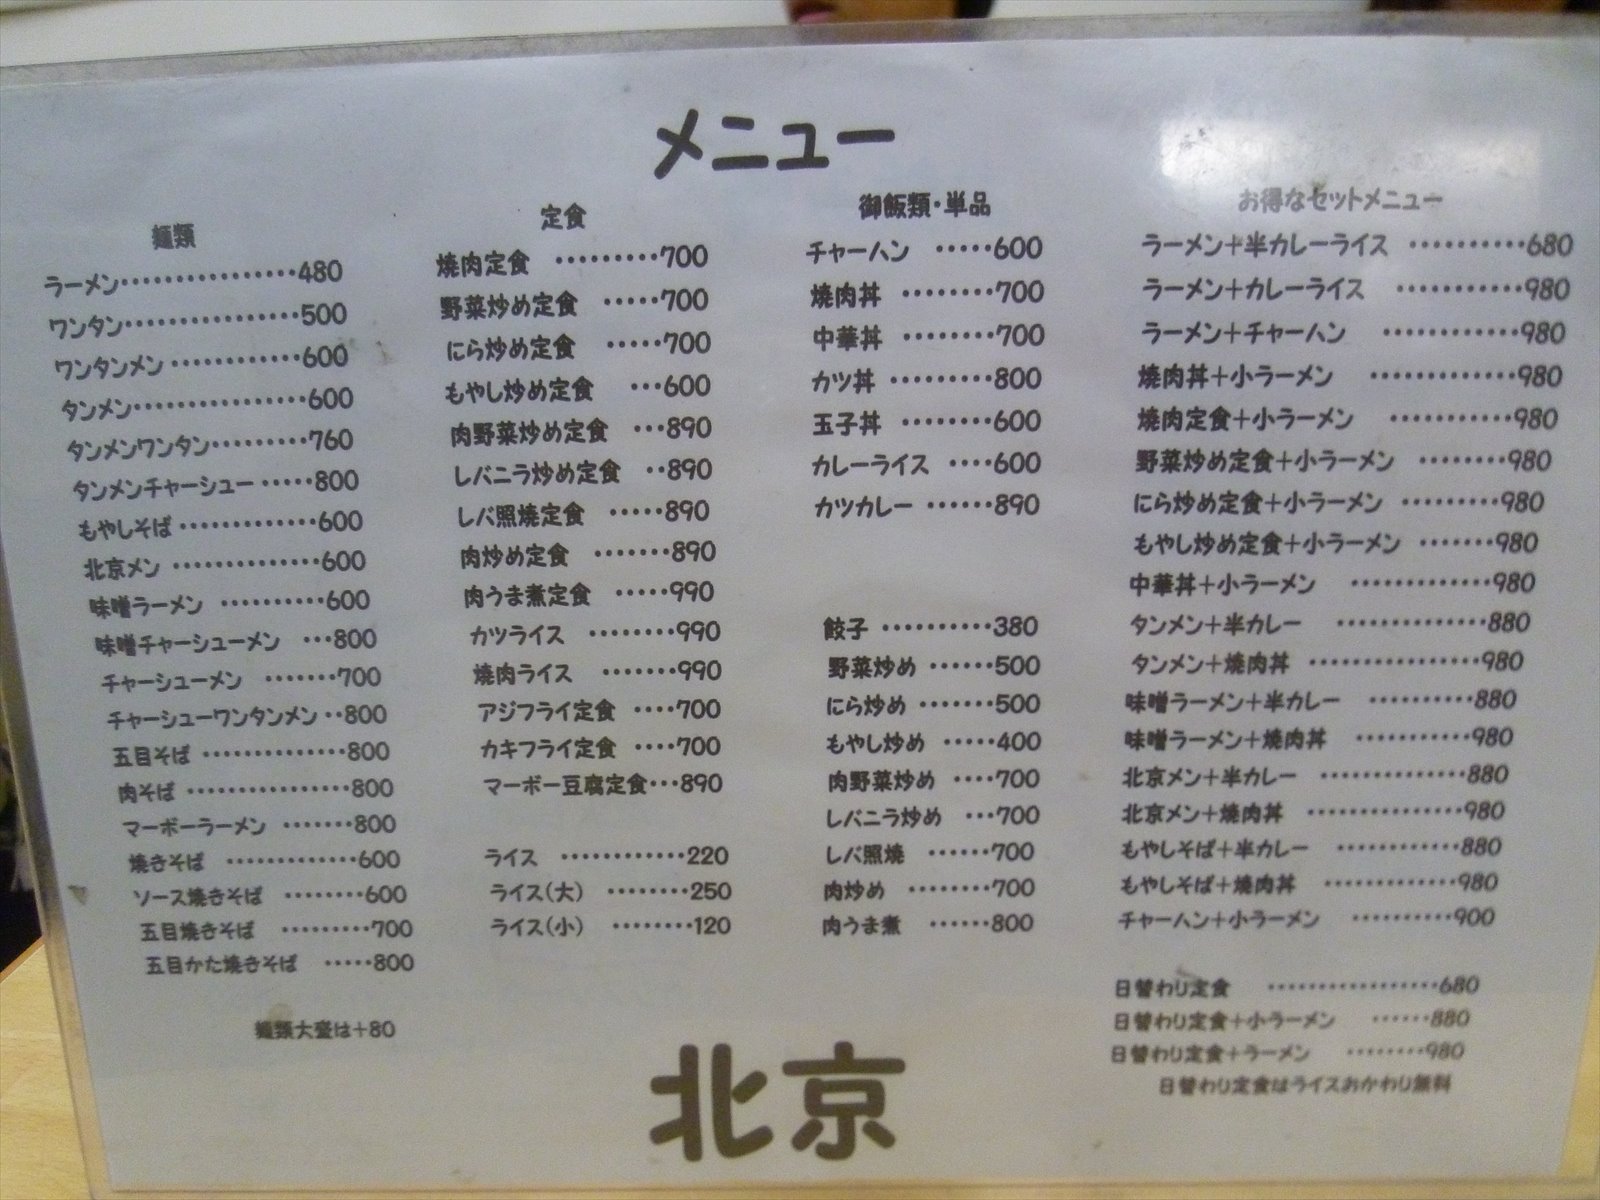 メニュー
麺類
ラーメン・・・・・・・・・・・・・・・480
ワンタン・・・・・・・・・・・・・・・・500
ワンタンメン・・・・・・・・・・・・600
タンメン・・・・・・・・・・・・・・・・600
タンメンワンタン・・・・・・・・・760
タンメンチャーシュー・・・・・800
もやしそば・・・・・・・・・・・・・600
北京メン・・・・・・・・・・・・・・600
味噌ラーメン・・・・・・・・・・600
味噌チャーシューメン・・・800
チャーシューメン・・・・・・・700
チャーシューワンタンメン・・800
五目そば・・・・・・・・・・・・・・800
肉そば・・・・・・・・・・・・・・・・800
マーボーラーメン・・・・・・・800
焼きそば・・・・・・・・・・・・・600
ソース焼きそば・・・・・・・・600
五目焼きそば・・・・・・・・・700
五目かた焼きそば・・・・・800
麺類大盛は+80
定食
焼肉定食・・・・・・・・・700
野菜炒め定食・・・・・700
にら炒め定食・・・・・700
もやし炒め定食・・・600
肉野菜炒め定食・・・890
レバニラ炒め定食・・890
レバ照焼定食・・・・・890
肉炒め定食・・・・・・・890
肉うま煮定食・・・・・990
カツライス・・・・・・・・990
焼肉ライス・・・・・・・990
アジフライ定食・・・・700
カキフライ定食・・・・700
マーボー豆腐定食・・・890
ライス・・・・・・・・・・・・220
ライス(大)・・・・・・・・250
ライス(小)・・・・・・・・120
御飯類・単品
チャーハン・・・・・600
焼肉丼・・・・・・・・700
中華丼・・・・・・・・700
カツ丼・・・・・・・・・800
玉子丼・・・・・・・・600
カレーライス・・・・600
カツカレー・・・・・・890
餃子・・・・・・・・・・380
野菜炒め・・・・・・500
にら炒め・・・・・・・500
もやし炒め・・・・・400
肉野菜炒め・・・・700
レバニラ炒め・・・700
レバ照焼・・・・・・700
肉炒め・・・・・・・・700
肉うま煮・・・・・・800
お得なセットメニュー
ラーメン+半カレーライス・・・・・・・・・・680
ラーメン+カレーライス・・・・・・・・・・・980
ラーメン+チャーハン・・・・・・・・・・・・980
焼肉丼+小ラーメン・・・・・・・・・・・・・980
焼肉定食+小ラーメン・・・・・・・・・・・980
野菜炒め定食+小ラーメン・・・・・・・・980
にら炒め定食+小ラーメン・・・・・・・・・980
もやし炒め定食+小ラーメン・・・・・・・980
中華丼+小ラーメン・・・・・・・・・・・・・980
タンメン+半カレー・・・・・・・・・・・・・・880
タンメン+焼肉丼・・・・・・・・・・・・・・・・980
味噌ラーメン+半カレー・・・・・・・・・・880
味噌ラーメン+焼肉丼・・・・・・・・・・・980
北京メン+半カレー・・・・・・・・・・・・・・880
北京メン+焼肉丼・・・・・・・・・・・・・・・980
もやしそば+半カレー・・・・・・・・・・・・880
もやしそば+焼肉丼・・・・・・・・・・・・・980
チャーハン+小ラーメン・・・・・・・・・・900
日替わり定食・・・・・・・・・・・・・・・・・680
日替わり定食+小ラーメン・・・・・・880
日替わり定食+ラーメン・・・・・・・・980
日替わり定食はライスおかわり無料
北京